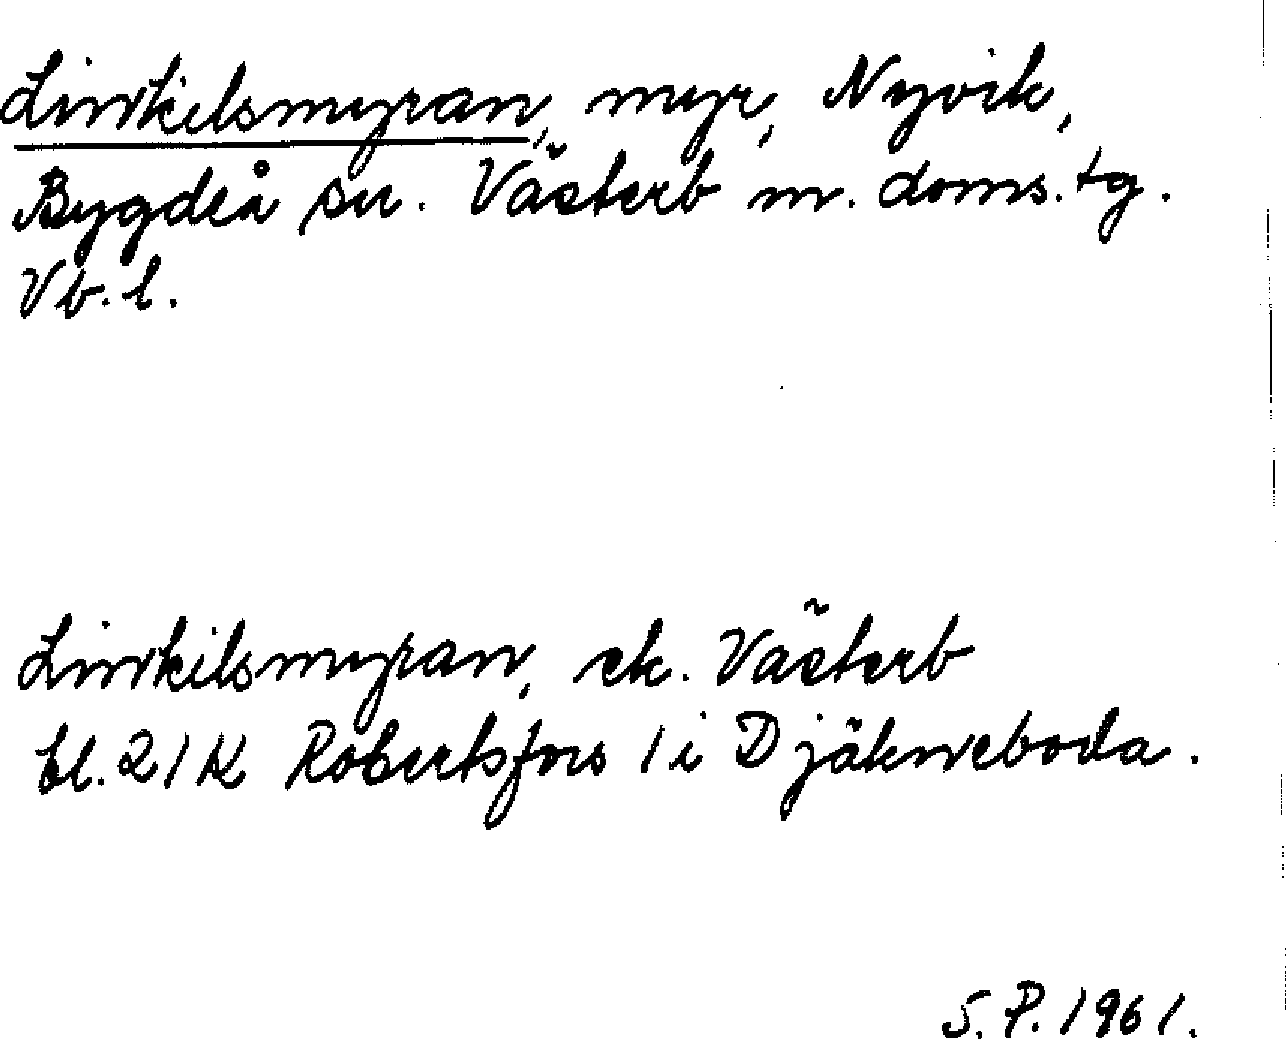 Linkilsmyran, myr, Nyvik,
Bygdeå sn. Västerb m. doms.tg.
Vb.l.
Linkilsmyran, ek. Västerb
bl. 21 K Robertsfors 1 i Djäkneboda.
S.P. 1961.